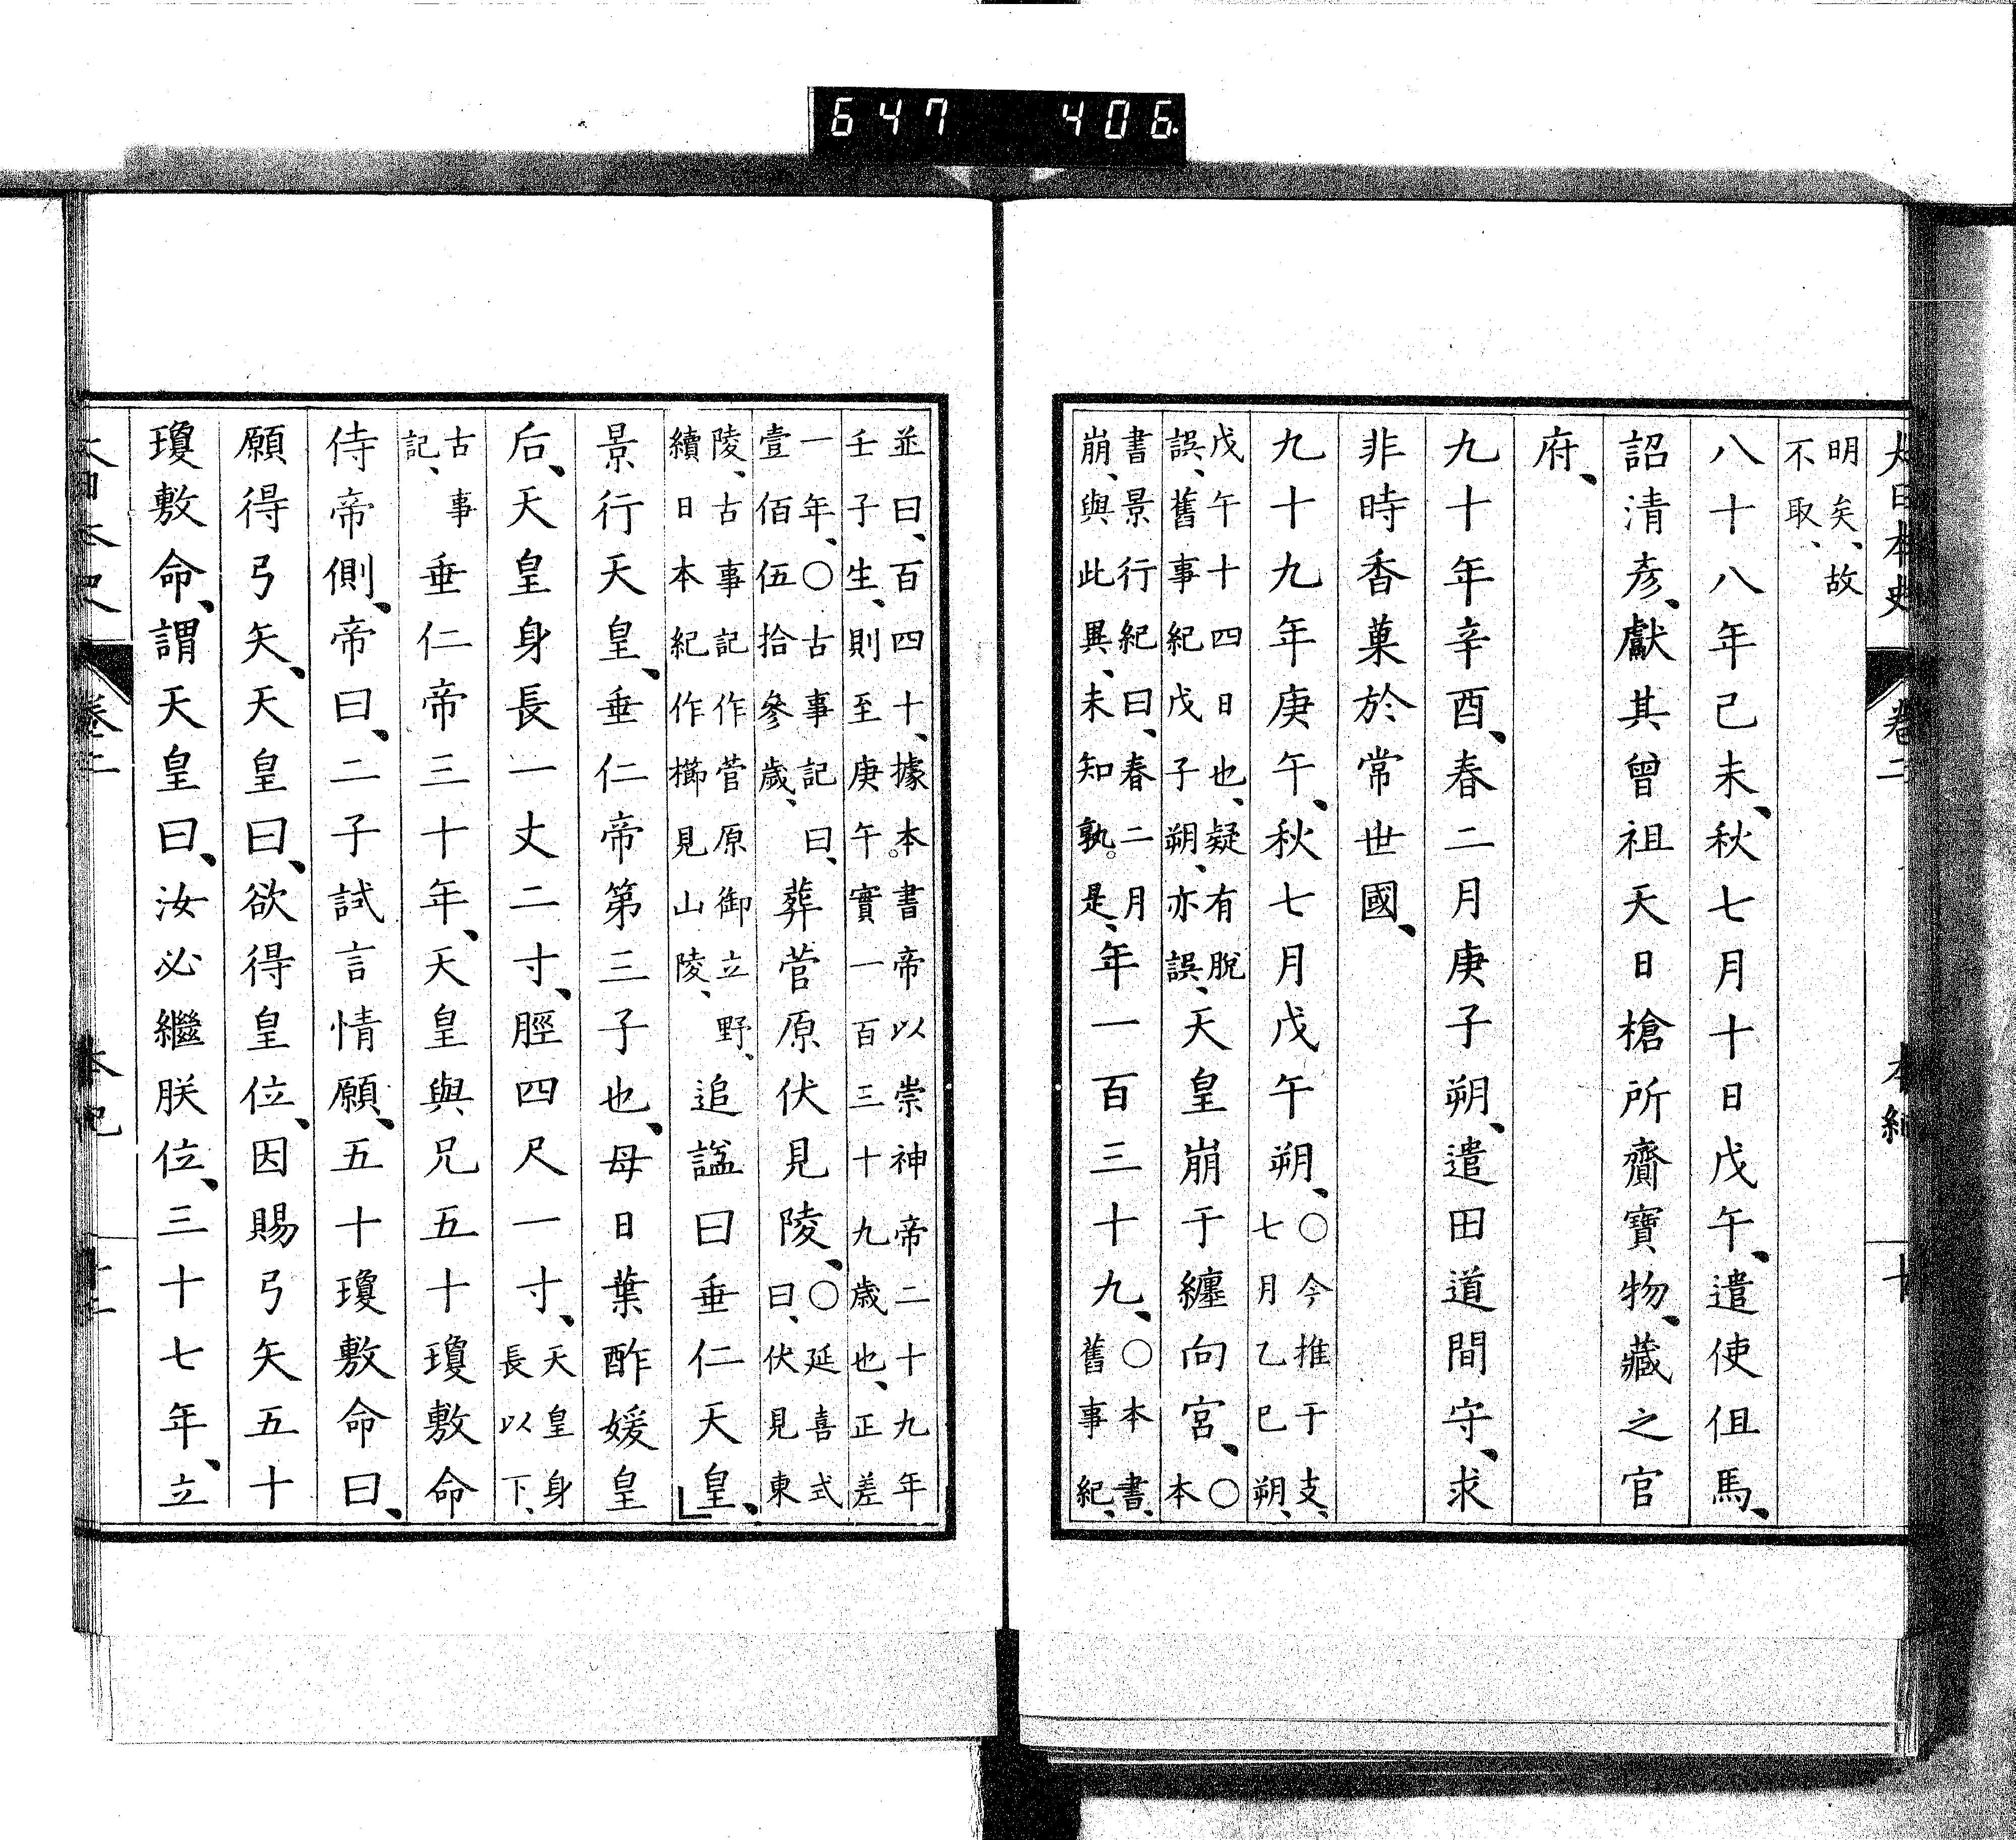 647 406
大日本史 卷二 本紀 十
明矣、故
不取、
八十八年己未、秋七月十日戊午、遣使但馬、
詔清彥、獻其曾祖天日槍所齎寶物、藏之官
府、
九十年辛酉、春二月庚子朔、遣田道間守、求
非時香菓於常世國、
九十九年庚午、秋七月戊午朔、○今推干支、七月乙巳朔、
戊午十四日也、疑有脫誤、舊事紀戊子朔、亦誤、天皇崩于纏向宮、○本
書景行紀曰、春二月崩、與此異、未知孰是、年一百三十九、○本書、舊事紀、
並曰、百四十、據本書帝以崇神帝二十九年
壬子生、則至庚午。實一百三十九歲也、正差
一年、○古事記曰、壹佰伍拾參歲、葬菅原伏見陵、○延喜式曰、伏見東
陵、古事記作菅原御立野、續日本紀作櫛見山陵、追諡曰垂仁天皇、
景行天皇、垂仁帝第三子也、母日葉酢媛皇
后、天皇身長一丈二寸、脛四尺一寸、天皇身長以下、
古事記、垂仁帝三十年、天皇與兄五十瓊敷命
侍帝側、帝曰、二子試言情願、五十瓊敷命曰、
願得弓矢、天皇曰、欲得皇位、因賜弓矢五十
瓊敷命、謂天皇曰、汝必繼朕位、三十七年、立
大日本史 卷二 本紀